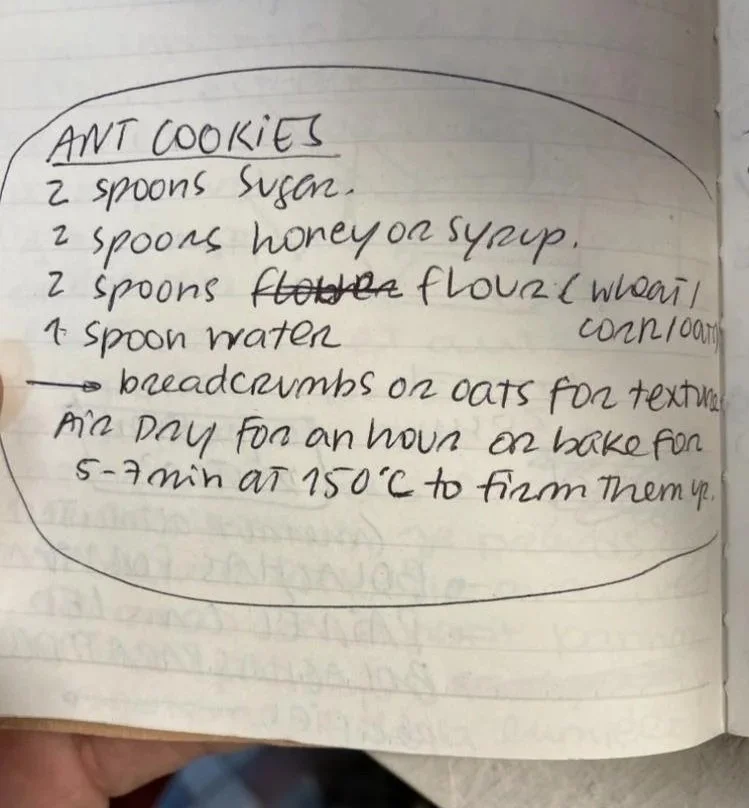 ANT COOKIES
2 spoons sugar.
2 spoons honey or syrup.
2 spoons flower flour (wheat/
1 spoon water corn/oat)
→ breadcrumbs or oats for texture
Air Dry for an hour or bake for
5-7 min at 150°C to firm them up.